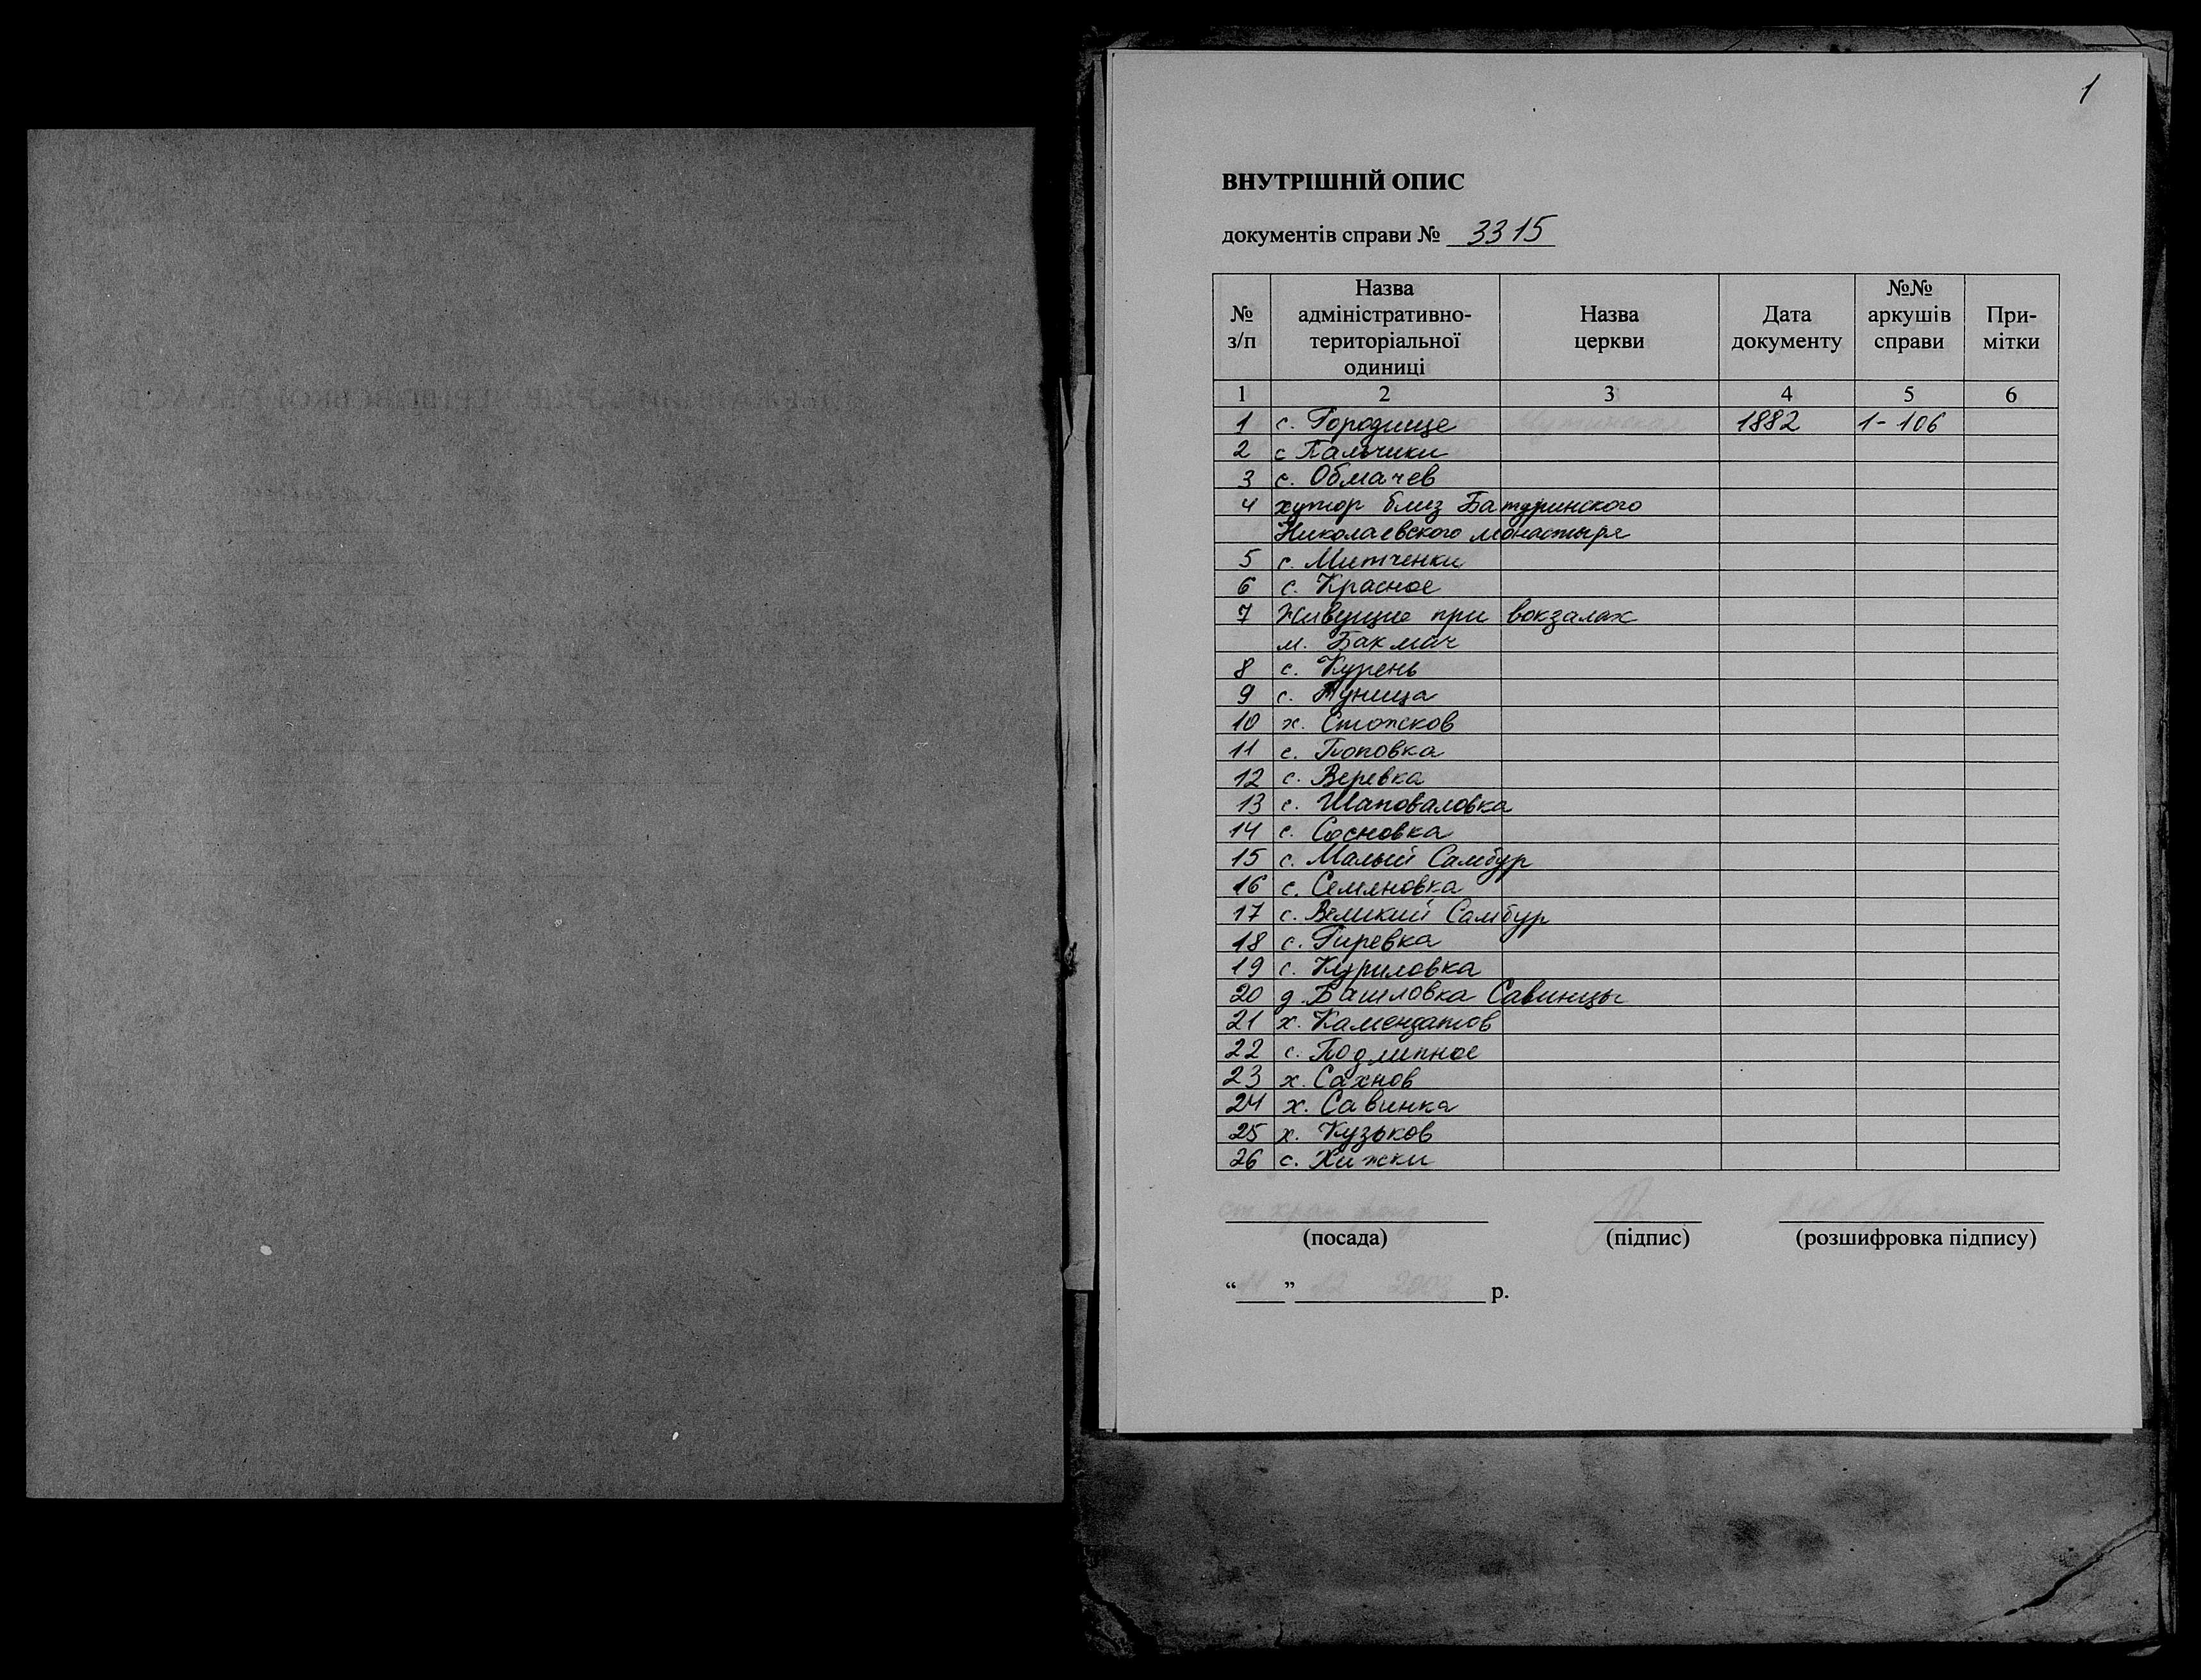 1
ВНУТРІШНІЙ ОПИС
документів справи № 3315
№ з/п Назва адміністративно-територіальної одиниці Назва церкви Дата документу №№ аркушів справи При-мітки
1 2 3 4 5 6
1 с. Городище 1882 1-106
2 с Пальчики
3 с. Обмачев
4 хутор близ Батуринского
Николаевского монастыря
5 с. Митченки
6 с. Красное
7 Живущие при вокзалах
м. Бахмач
8 с. Курень
9 с. Туница
10 х. Стожков
11 с. Поповка
12 с. Веревка
13 с. Шаповаловка
14 с. Сосновка
15 с. Малый Самбур
16 с. Семяновка
17 с. Великий Самбур
18 с. Гиревка
19 с. Куриловка
20 д. Башловка Савинцы
21 х. Камендатов
22 с. Подлипное
23 х. Сахнов
24 х. Савинка
25 х. Кузьков
26 с. Хижки
ст. хран. фонд
(посада) (підпис) (розшифровка підпису)
“11” 12 2003 р.